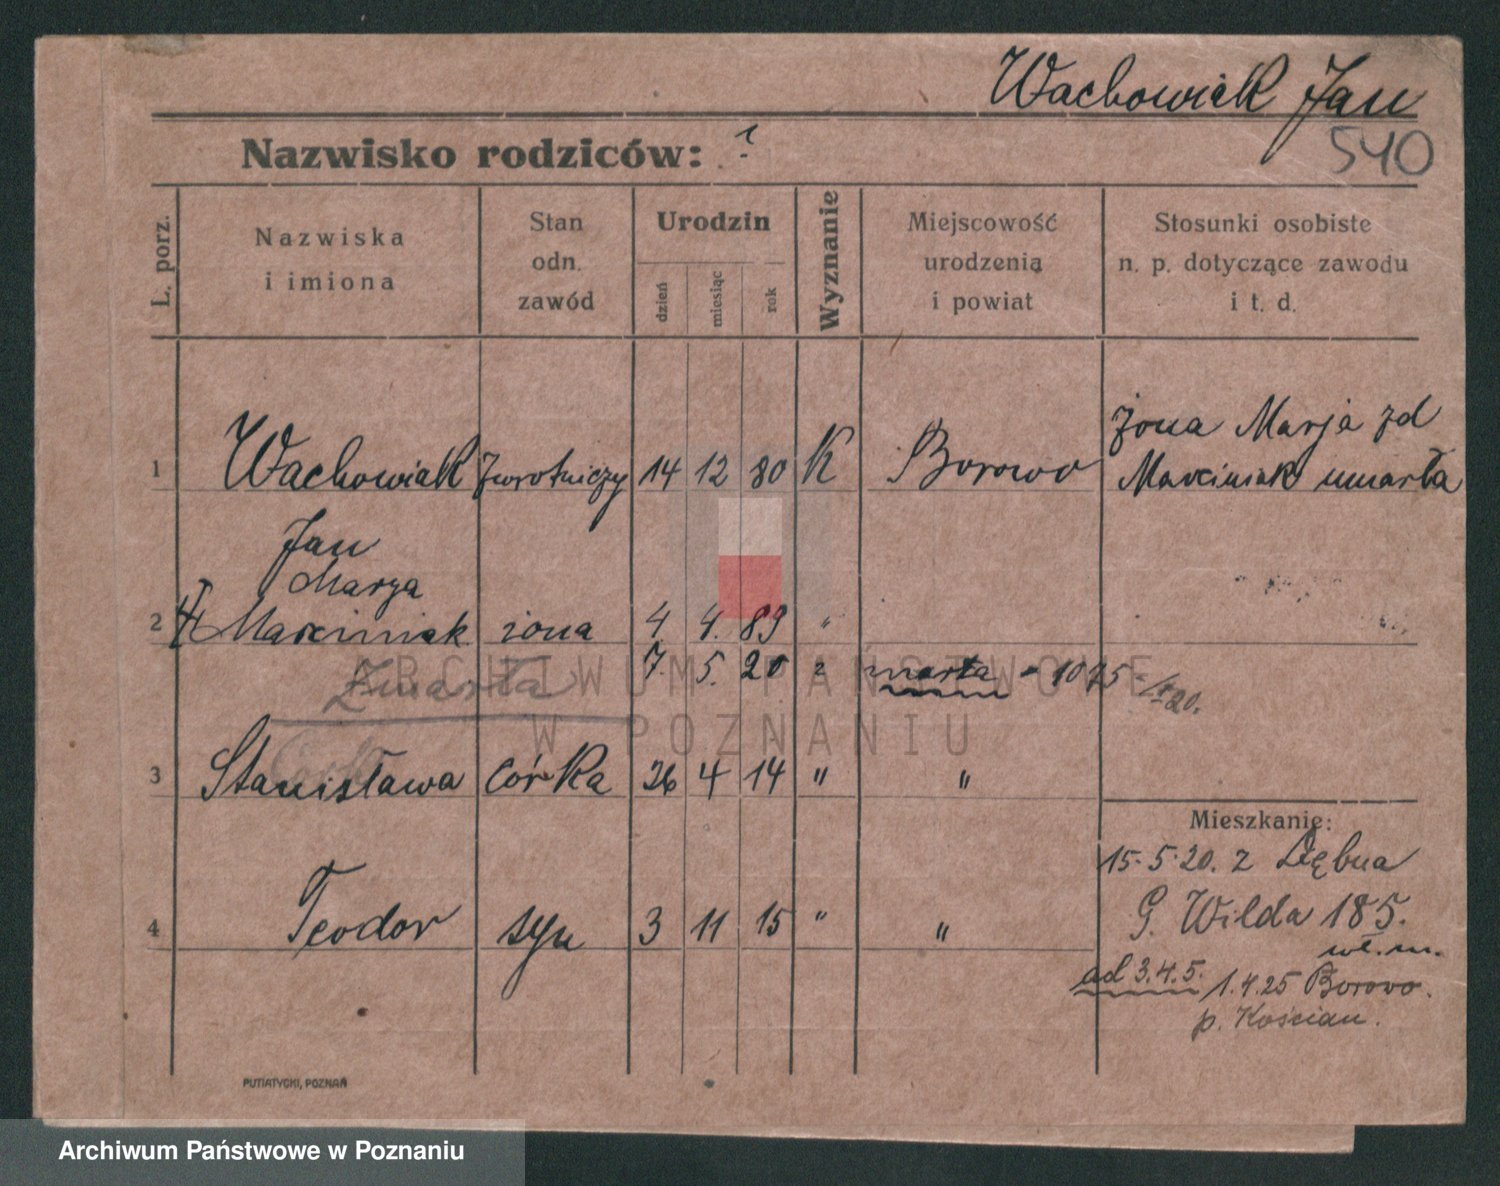 Wachowiak Jan
540
Nazwisko rodziców: ?
L. porz.
Nazwiska
i imiona
Stan
odn.
zawód
Urodzin
dzień
miesiąc
rok
Wyznanie
Miejscowość
urodzenia
i powiat
Stosunki osobiste
n. p. dotyczące zawodu
i t. d.
1 Wachowiak Zwrotniczy 14 12 80 K Borowo
żona Marja zd
Marciniak umarła
Jan
Marya
2 Marciniak żona 4 4. 89 "
Zmarła 7. 5. 20
3 Stanisława córka 26 4 14 " "
4 Teodor syn 3 11 15 " "
Mieszkanie:
15.5.20. z Dębna
G. Wilda 185.
ad 3.4.5. 1.4.25 Borowo.
p. Kościan.
PUTIATYCKI, POZNAŃ
ARCHIWUM PAŃSTWOWE
W POZNANIU
Archiwum Państwowe w Poznaniu